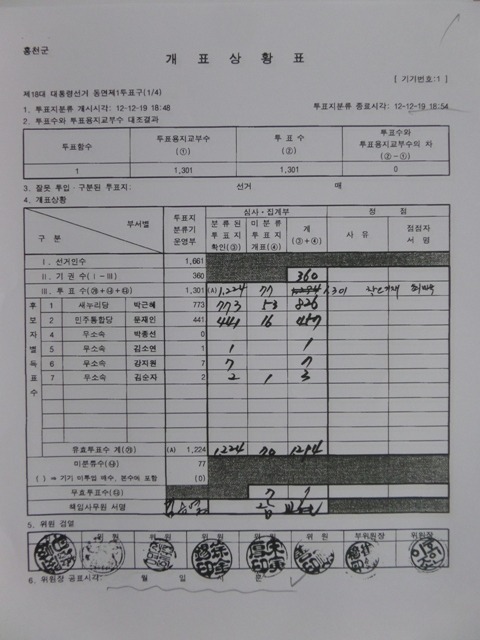 홍천군
개 표 상 황 표
[ 기기번호:1 ]
제18대 대통령선거 동면제1투표구(1/4)
1. 투표지분류 개시시각: 12-12-19 18:48 투표지분류 종료시각: 12-12-19 18:54
2. 투표수와 투표용지교부수 대조결과
투표함수 투표용지교부수 (①) 투 표 수 (②) 투표수와 투표용지교부수의 차 (②-①)
1 1,301 1,301 0
3. 잘못 투입·구분된 투표지: 선거 매
4. 개표상황
부서별 구 분 투표지 분류기 운영부 심사·집계부 정 정
분류된 투표지 확인(③) 미분류 투표지 개표(④) 계 (③+④) 사 유 정정자 서 명
Ⅰ. 선거인수 1,661
Ⅱ. 기 권 수 (Ⅰ-Ⅲ) 360 360
Ⅲ. 투 표 수 1,301 (A) 1,224 77 1,301
후보자별 득표수
1 새누리당 박근혜 773 773 53 826
2 민주통합당 문재인 441 441 16 457
4 무소속 박종선 0
5 무소속 김소연 1 1 1
6 무소속 강지원 7 7 7
7 무소속 김순자 2 2 1 3
유효투표수 계 (A) 1,224 1,224 70 1294
미분류수 77
( ) ⇒ 기기 미투입 매수, 본수에 포함 (0)
무효투표수 7 7
책임사무원 서명
5. 위원 검열
위 원 위 원 부위원장 위원장
6. 위원장 공표시각: 월 일 분